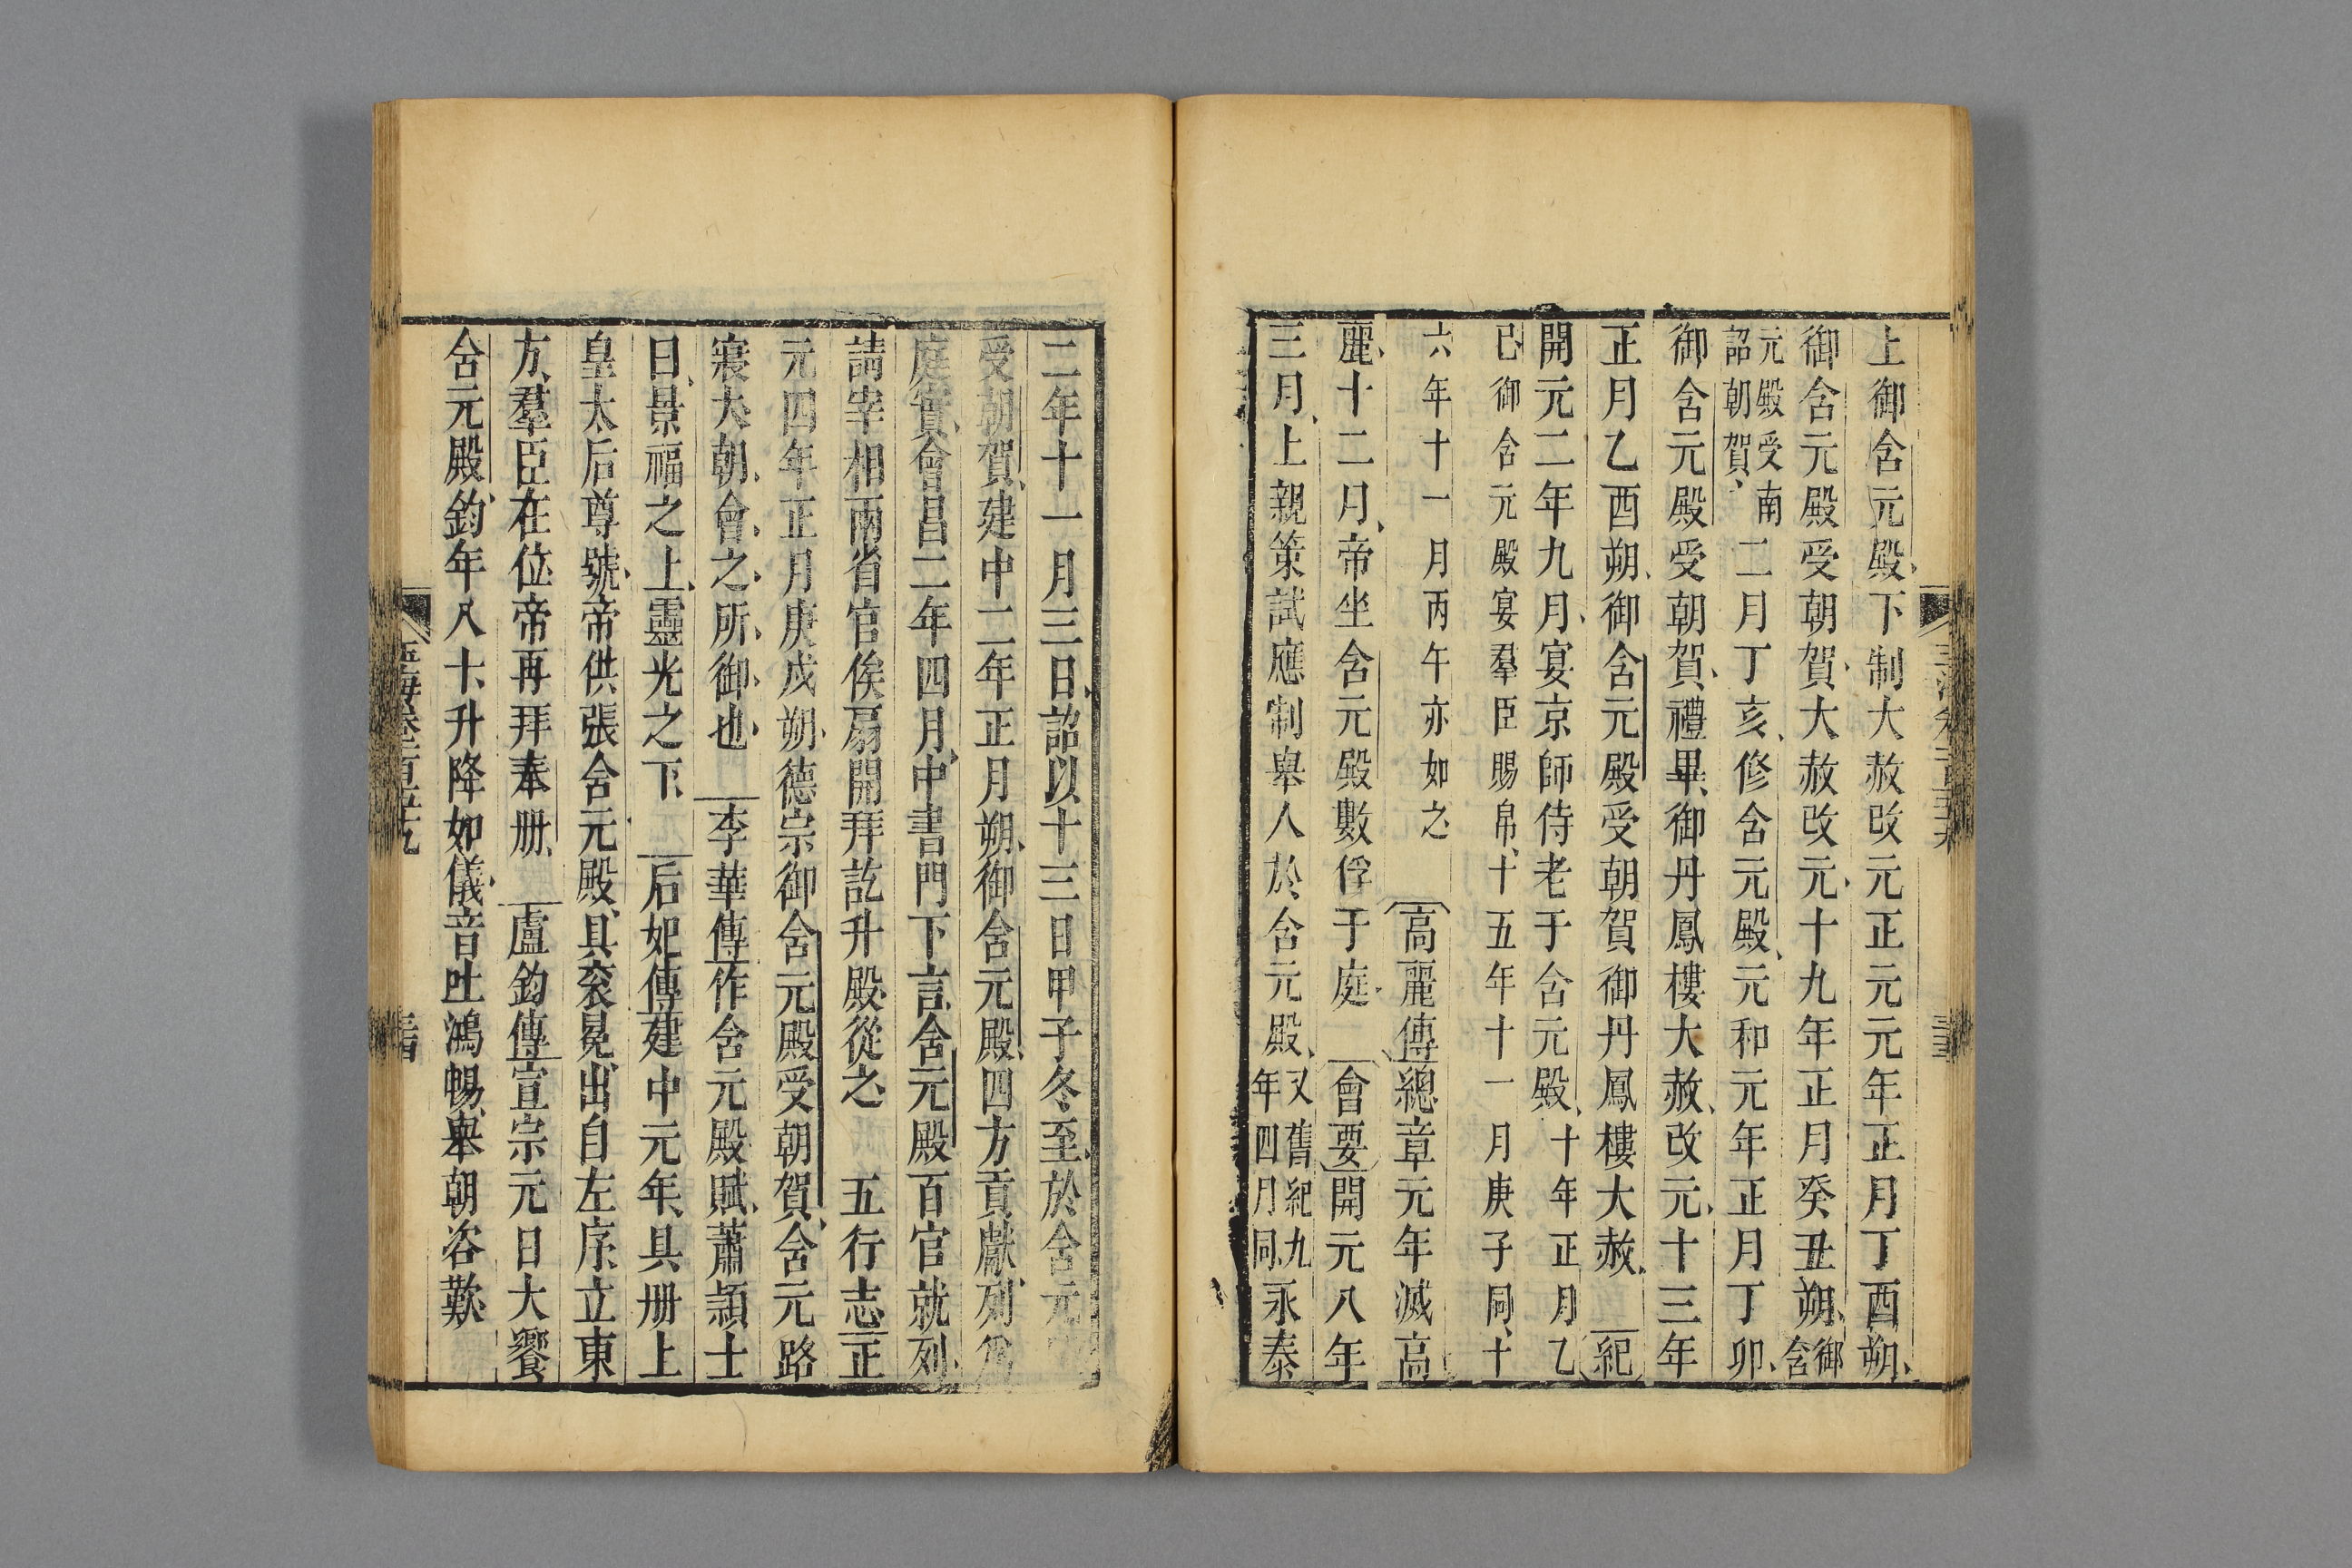 上御含元殿下制大赦改元正元元年正月丁酉朔
御含元殿受朝賀大赦改元十九年正月癸丑朔御含
元殿受南
詔朝賀二月丁亥修含元殿元和元年正月丁卯
御含元殿受朝賀禮畢御丹鳳樓大赦改元十三年
正月乙酉朔御含元殿受朝賀御丹鳳樓大赦紀
開元二年九月宴京師侍老于含元殿十年正月乙
已御含元殿宴羣臣賜帛十五年十一月庚子同十
六年十一月丙午亦如之
高麗傳總章元年滅高
麗十二月帝坐含元殿數俘于庭會要開元八年
三月上親策試應制舉人於含元殿又舊紀九
年四月同永泰
二年十一月三日詔以十三日甲子冬至於含元
受朝賀建中二年正月朔御含元殿四方貢獻列爲
庭實會昌二年四月中書門下言含元殿百官就列
請宰相兩省官俟扇開拜訖升殿從之五行志正
元四年正月庚戌朔德宗御含元殿受朝賀含元路
寢大朝會之所御也李華傳作含元殿賦蕭頴士
曰景福之上靈光之下后妃傳建中元年具册上
皇太后尊號帝供張含元殿具衮冕出自左序立東
方羣臣在位帝再拜奉册盧鈞傳宣宗元日大饗
含元殿鈞年八十升降如儀音吐鴻暢舉朝咨歎
玉海卷一百五十九